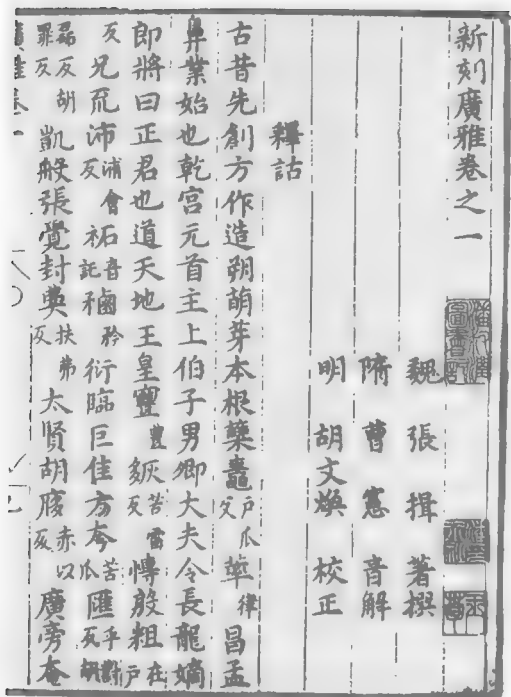 新刻廣雅卷之一
魏 張 揖 著撰
隋 曹 憲 音解
明 胡文煥 校正
釋詁
古昔先創方作造朔萌芽本根櫱鼃戶瓜反𦘒律昌孟
鼻業始也乾宮元首主上伯子男卿大夫令長龍嫡
即將曰正君也道天地王皇䝔豐䫥苦雷反慱般粗在戶
反兄𠑽沛浦會反祏音託䄠矜衍臨巨佳方夸苦瓜匯乎對反胡
磊反胡罪反凱般張覚封奰扶弗反太賢胡腹赤以反廣旁奄